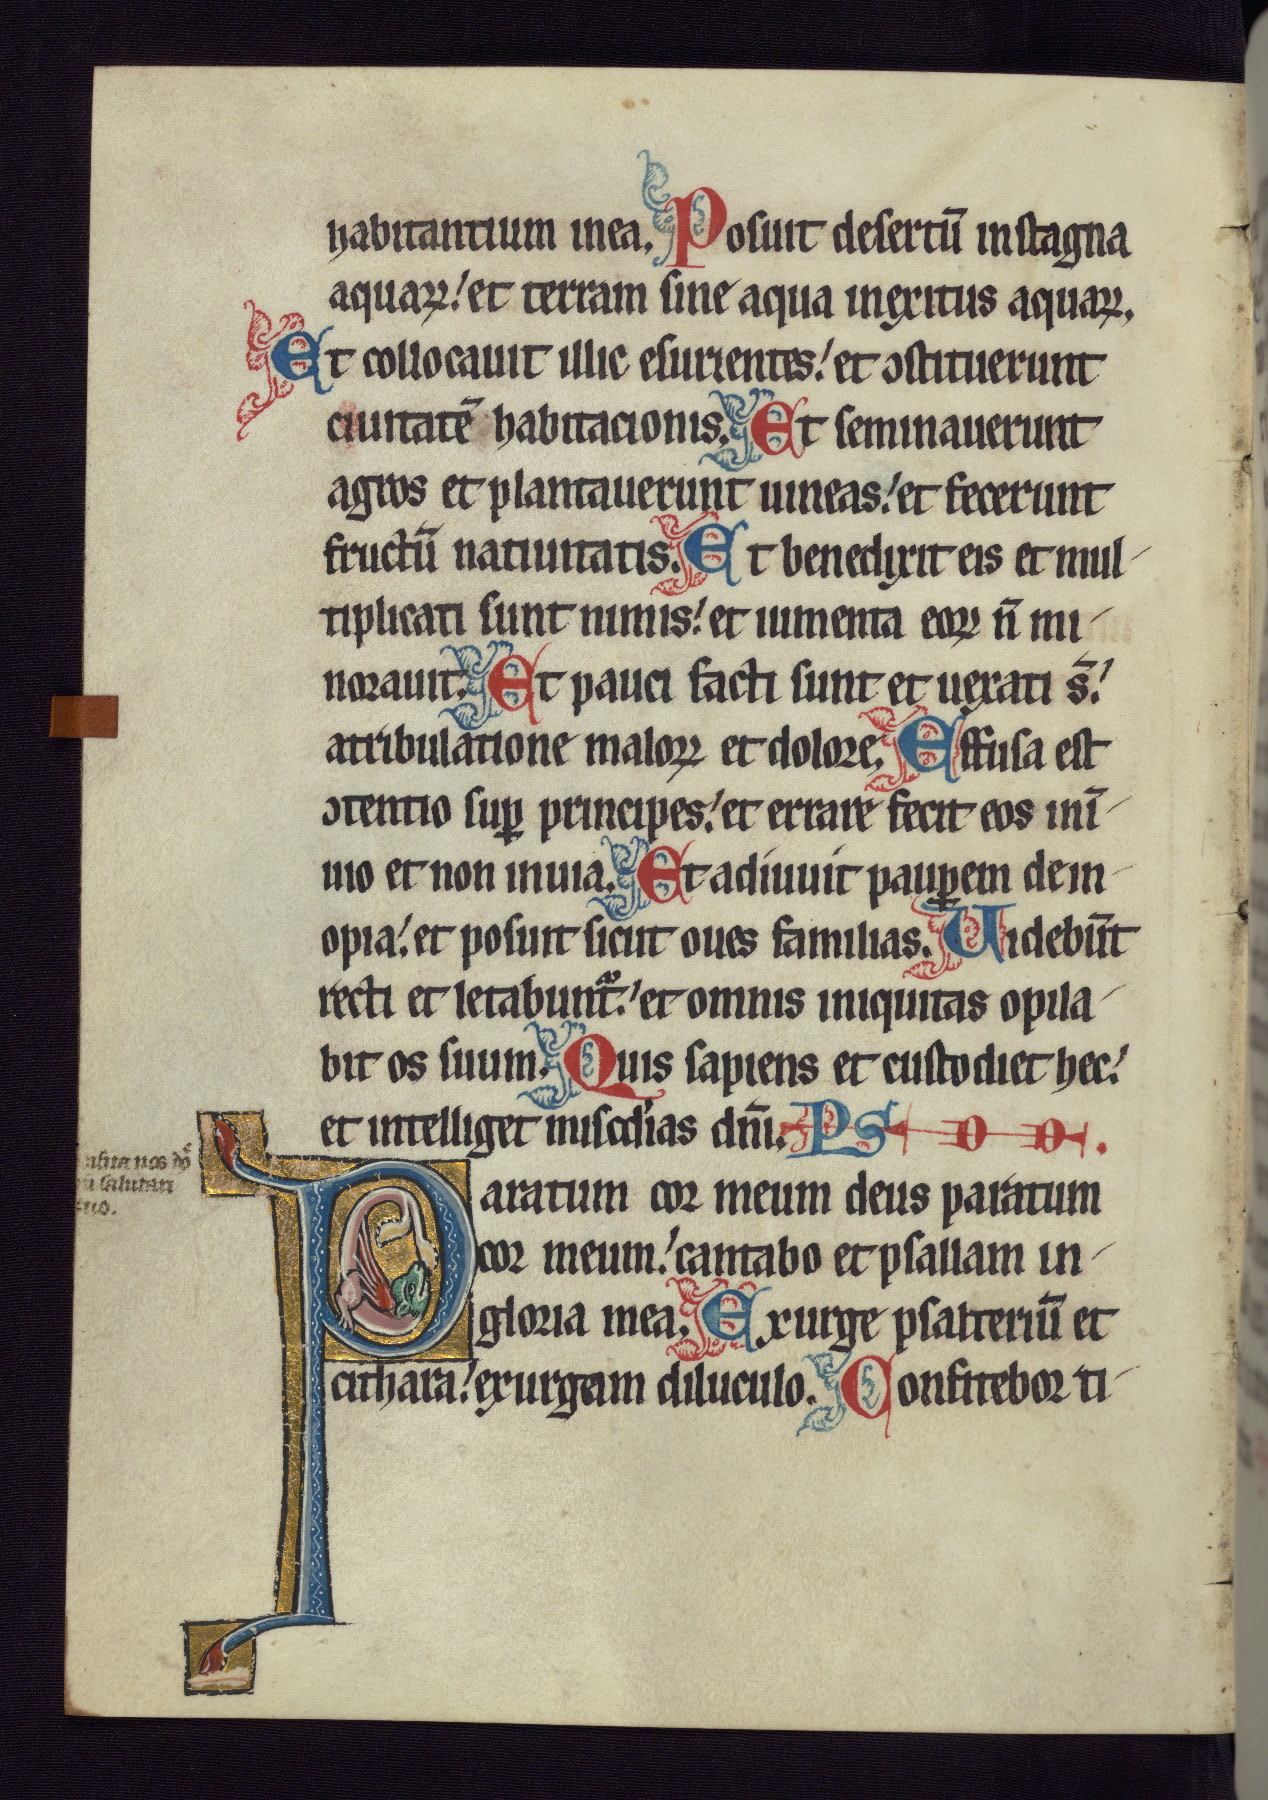 habitantium in ea. Posuit desertū in stagna
aquaꝝ: et terram sine aqua in exitus aquaꝝ.
Et collocauit illic esurientes: et ↄstituerunt
ciuitatē habitacionis. Et seminauerunt
agros et plantauerunt uineas: et fecerunt
fructū natiuitatis. Et benedixit eis et mul-
tiplicati sunt nimis: et iumenta eoꝝ n̄ mi-
norauit. Et pauci facti sunt et uexati s̄:
a tribulatione maloꝝ et dolore. Effusa est
ↄtentio suꝑ principes: et errare fecit eos in ī-
uio et non in uia. Et adiuuit pauꝑem de in-
opia: et posuit sicut oues familias. Uidebūt
recti et letabunt᷑: et omnis iniquitas opila-
bit os suum. Quis sapiens et custodiet hec:
et intelliget miscd̓ias dn̄i. PS
Paratum cor meum deus paratum
cor meum: cantabo et psallam in-
gloria mea. Exurge psalteriū et
cithara: exurgam diluculo. Confitebor ti-
nos
salutari